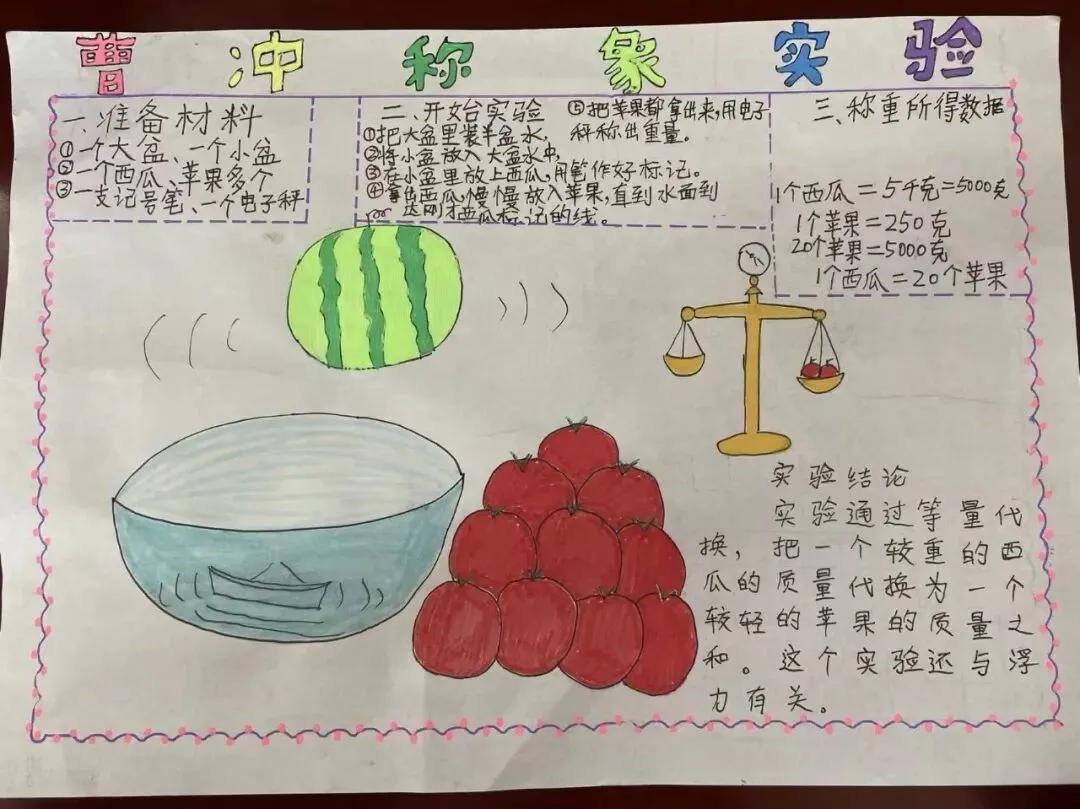 曹冲称象实验
一、准备材料
①一个大盆、一个小盆
②一个西瓜、苹果多个
③一支记号笔、一个电子秤
二、开始实验
①把大盆里装半盆水,
②将小盆放入大盆水中,
③在小盆里放上西瓜,用笔作好标记。
④拿出西瓜,慢慢放入苹果,直到水面到
达刚才西瓜标记的线。
⑤把苹果都拿出来,用电子
秤称出重量。
三、称重所得数据
1个西瓜=5千克=5000克
1个苹果=250克
20个苹果=5000克
1个西瓜=20个苹果
实验结论
实验通过等量代
换,把一个较重的西
瓜的质量代换为一个
较轻的苹果的质量之
和。这个实验还与浮
力有关。